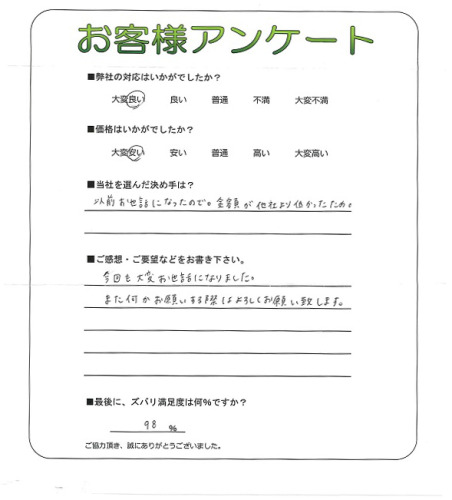 お客様アンケート
■弊社の対応はいかがでしたか？
大変良い 良い 普通 不満 大変不満
■価格はいかがでしたか？
大変安い 安い 普通 高い 大変高い
■当社を選んだ決め手は？
以前お世話になったので。金額が他社より低かったため。
■ご感想・ご要望などをお書き下さい。
今回も大変お世話になりました。
また何かお願いする際はよろしくお願い致します。
■最後に、ズバリ満足度は何％ですか？
98 ％
ご協力頂き、誠にありがとうございました。